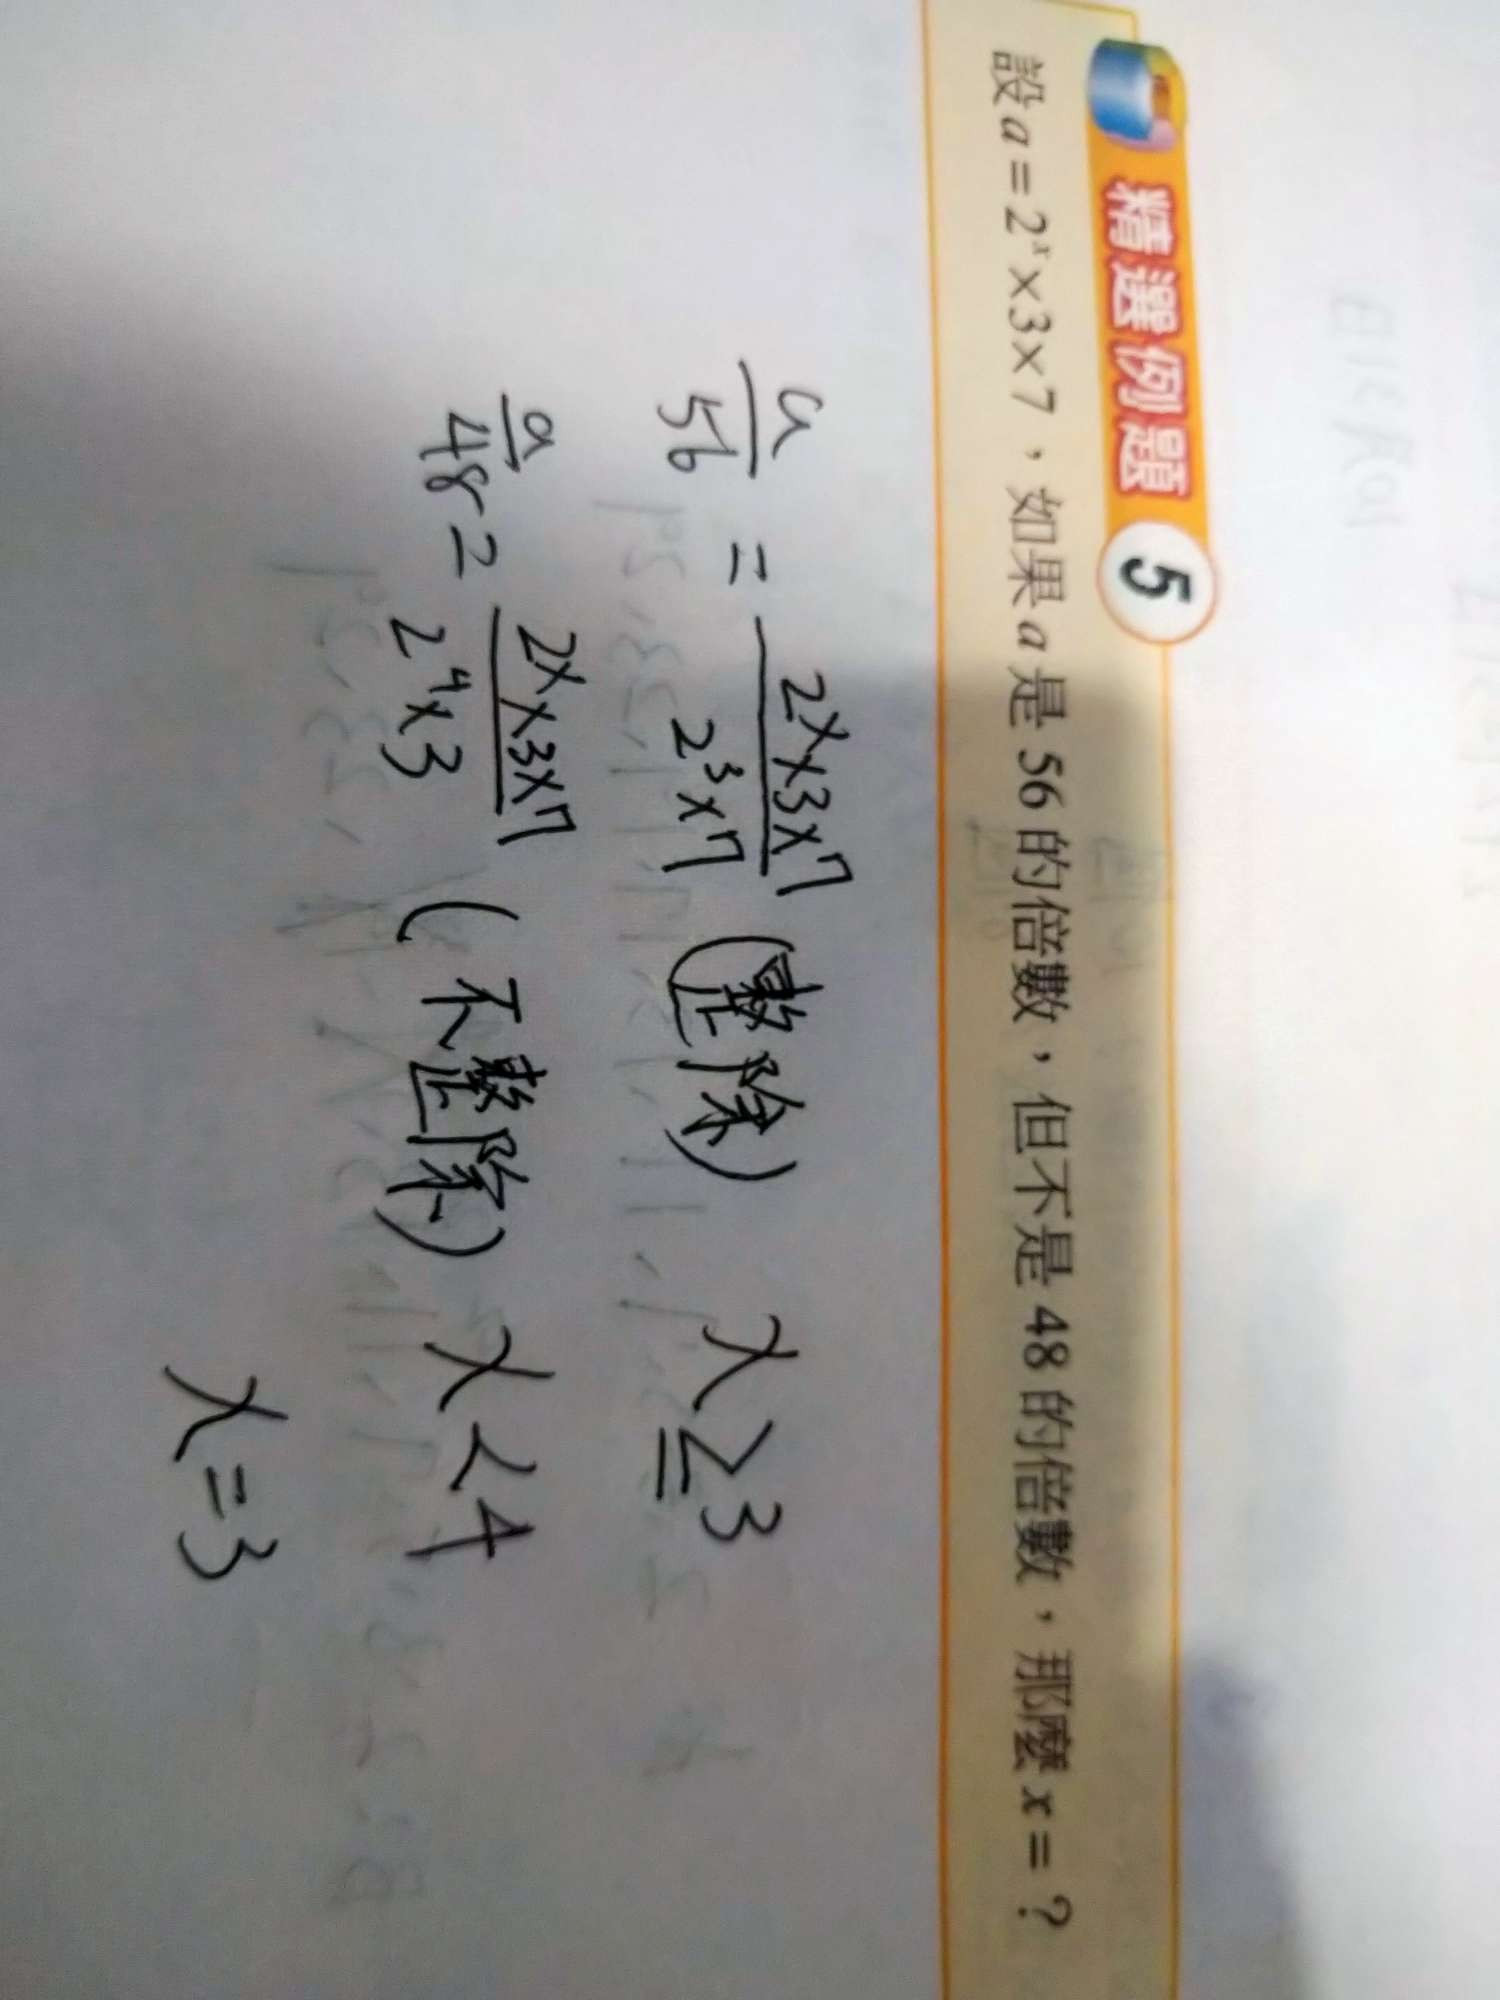 精選例題 5
設 a = 2ˣ×3×7，如果 a 是 56 的倍數，但不是 48 的倍數，那麼 x = ？
a/56 = 2ˣ×3×7/2³×7 (整除) x≥3
a/48 = 2ˣ×3×7/2⁴×3 (不整除) x<4
x=3